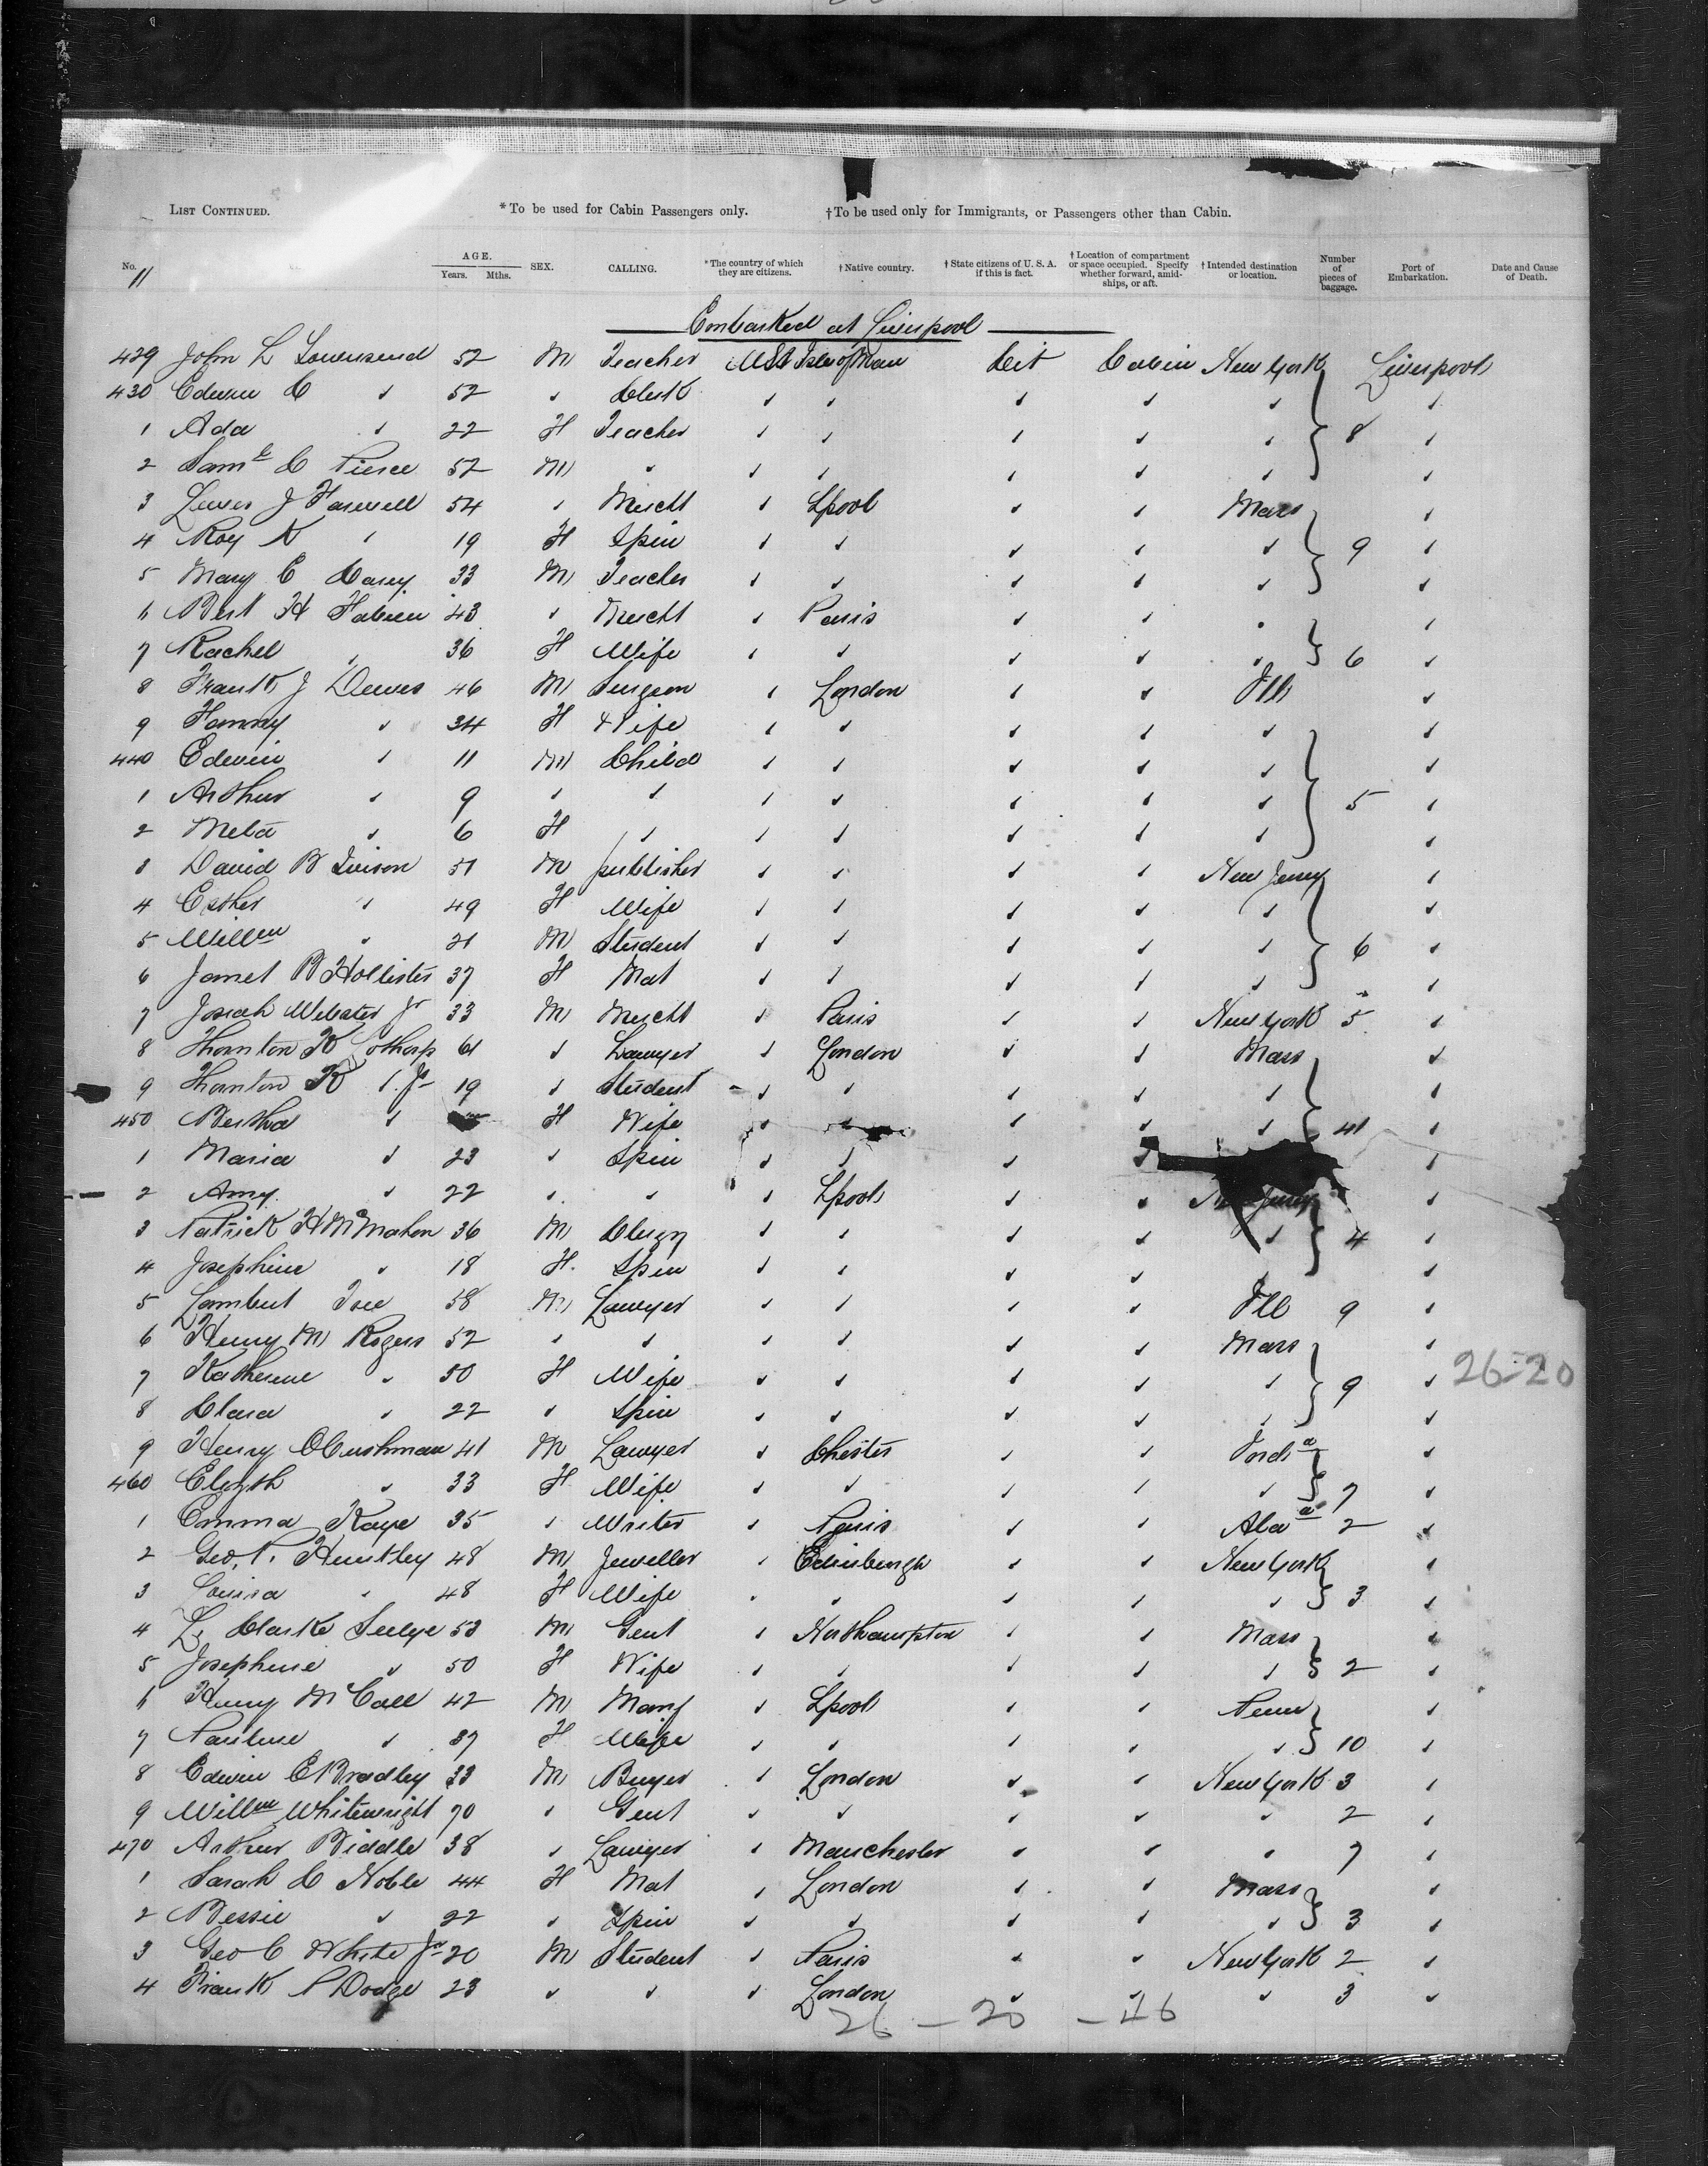 LIST CONTINUED. *To be used for Cabin Passengers only. †To be used only for Immigrants, or Passengers other than Cabin.
No. 11 AGE. Years. Mths. SEX. CALLING. *The country of which they are citizens. †Native country. †State citizens of U. S. A. if this is fact. †Location of compartment or space occupied. Specify whether forward, amidships, or aft. †Intended destination or location. Number of pieces of baggage. Port of Embarkation. Date and Cause of Death.
Embarked at Liverpool
429 John L Townsend 52 M Teacher USA Isle of Man Cit Cabin New York Liverpool
430 Edwin C " 52 " Clerk " " " " " "
1 Ada " 22 F Teacher " " " " " 8 "
2 Saml C Pierce 52 M " " " " " " "
3 Lewis J Farwell 54 " Mercht " Lpool " " Mass "
4 Roy K " 19 F Spin " " " " " 9 "
5 Mary C Casey 33 M Teacher " " " " " "
6 Bert H Fabien 43 " Mercht " Paris " " " "
7 Rachel " 36 F Wife " " " " " 6 "
8 Frank J Dewes 46 M Surgeon " London " " Ill "
9 Fanny " 34 F Wife " " " " " "
440 Edwin " 11 M Child " " " " " "
1 Arthur " 9 " " " " " " " 5 "
2 Meta " 6 F " " " " " " "
3 David B Ivison 51 M publisher " " " " New Jersey "
4 Esther " 49 F Wife " " " " " "
5 Willm " 21 M Student " " " " " 6 "
6 Janet B Hollister 37 F Mat " " " " " "
7 Josiah Webster Jr 33 M Mercht " Paris " " New York 5 "
8 Thornton K Lothrop 61 " Lawyer " London " " Mass "
9 Thornton K " Jr 19 " Student " " " " " "
450 Bertha " F Wife " " " " 41 "
1 Maria " 23 " Spin " " " " "
2 Amy " 22 " " " Lpool " " New Jersey "
3 Patrick F McMahon 36 M Clergy " " " " " 4 "
4 Josephine " 18 F. Spin " " " " " "
5 Lambert Tree 58 M Lawyer " " " " Ill 9 "
6 Henry M Rogers 52 " " " " " " Mass "
7 Katherine " 50 F Wife " " " " " 9 " 26-20
8 Clara " 22 " Spin " " " " " "
9 Henry O Cushman 41 M Lawyer " Chester " " Inda "
460 " 33 F Wife " " " " " 7 "
1 Emma Kaye 35 " Writer " Paris " " Alaa 2 "
2 Geo. P. Huntley 48 M Jeweller " Edinburgh " " New York "
3 Louisa " 48 F Wife " " " " " 3 "
4 L. Clarke Seelye 53 M Gent " Northampton " " Mass "
5 Josephine " 50 F Wife " " " " " 2 "
6 Henry McCall 42 M Manf " Lpool " " Penn "
7 Pauline " 37 F Wife " " " " " 10 "
8 Edwin C Bradley 33 M Buyer " London " " New York 3 "
9 Willm Whitewright 70 " Gent " " " " " 2 "
470 Arthur Biddle 38 " Lawyer " Manchester " " " 7 "
1 Sarah C Noble 44 F Mat " London " " Mass "
2 Bessie " 22 " Spin " " " " " 3 "
3 Geo C White Jr 20 M Student " Paris " " New York 2 "
4 Frank P Dodge 23 " " " London " " " 3 "
26 - 20 - 46